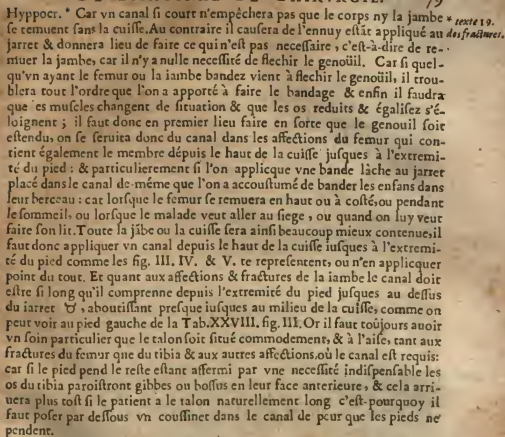 79
Hyppocr. * Car vn canal si court n'empêchera pas que le corps ny la jambe * texte 19.
se remuent sans la cuisse. Au contraire il causera de l'ennuy estãt appliqué au des fractures.
jarret & donnera lieu de faire ce qui n'est pas necessaire, c'est-à-dire de re-
muer la jambe, car il n'y a nulle necessité de flechir le genoüil. Car si quel-
qu'vn ayant le femur ou la iambe bandez vient à flechir le genoüil, il trou-
blera tout l'ordre que l'on a apporté à faire le bandage & enfin il faudra
que les muscles changent de situation & que les os reduits & égalisez s'é-
loignent ; il faut donc en premier lieu faire en sorte que le genouil soit
estendu, on se seruira donc du canal dans les affections du femur qui con-
tient également le membre dépuis le haut de la cuisse jusques à l'extremi-
té du pied : & particulierement si l'on applicque vne bande lâche au jarret
placé dans le canal de-même que l'on a accoustumé de bander les enfans dans
leur berceau : car lorsque le femur se remuera en haut ou à costé, ou pendant
le sommeil, ou lorsque le malade veut aller au siege, ou quand on luy veut
faire son lit. Toute la jãbe ou la cuisse sera ainsi beaucoup mieux contenue, il
faut donc appliquer vn canal depuis le haut de la cuisse iusques à l'extremi-
té du pied comme les fig. III. IV. & V. te representent, ou n'en applicquer
point du tout. Et quant aux affections & fractures de la iambe le canal doit
estre si long qu'il comprenne depuis l'extremité du pied jusques au dessus
du iarret ♉, aboutissant presque iusques au milieu de la cuisse, comme on
peut voir au pied gauche de la Tab. XXVIII. fig. III. Or il faut toûjours auoir
vn soin particulier que le talon soit situé commodement, & à l'aise, tant aux
fractures du femur que du tibia & aux autres affections, où le canal est requis:
car si le pied pend le reste estant affermi par vne necessité indispensable les
os du tibia paroistront gibbes ou bossus en leur face anterieure, & cela arri-
uera plus tost si le patient a le talon naturellement long c'est-pourquoy il
faut poser par dessous vn coussinet dans le canal de peur que les pieds ne
pendent.